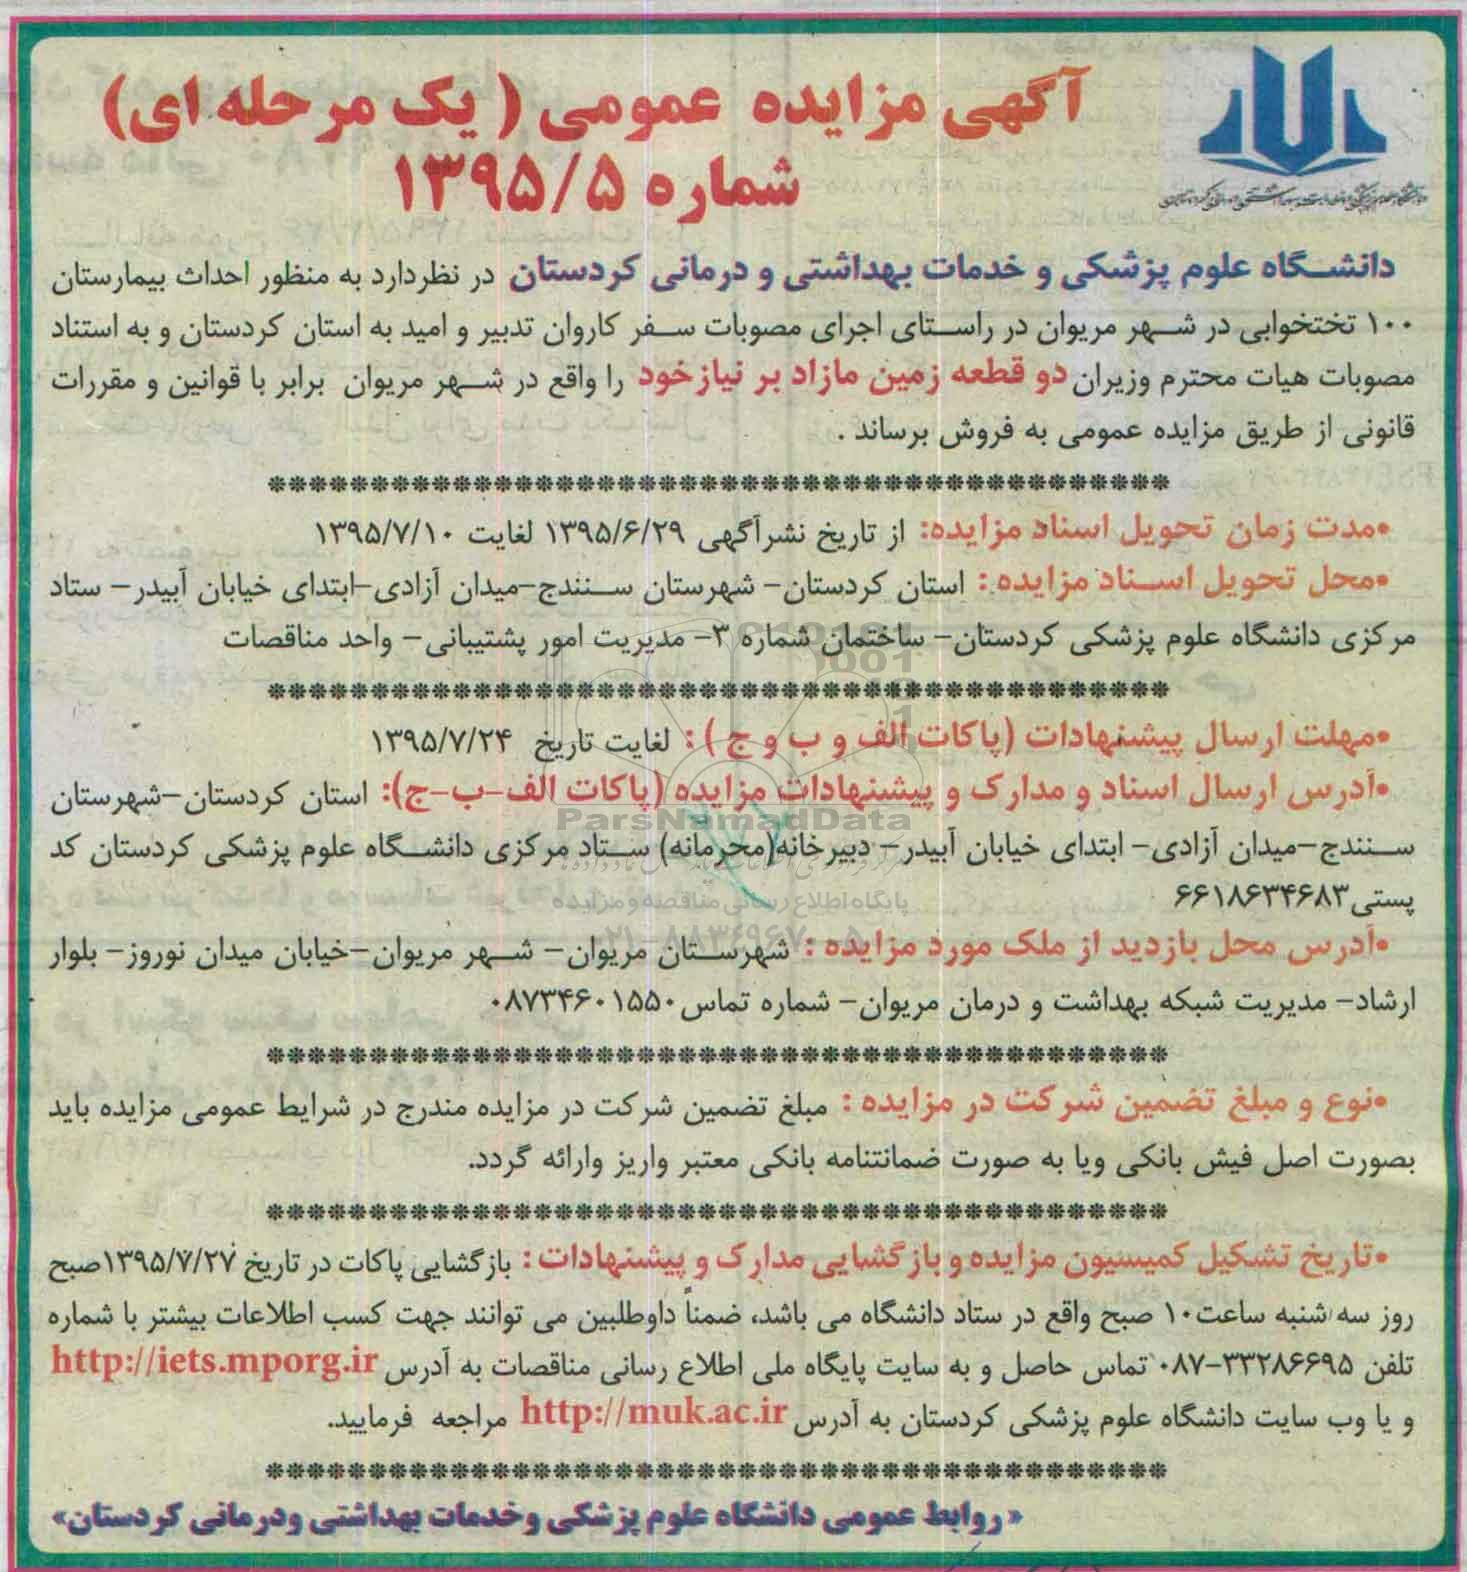 آگهی مزایده عمومی ( یک مرحله ای)
شماره ۱۳۹۵/۵
دانشگاه علوم پزشکی و خدمات بهداشتی و درمانی کردستان در نظردارد به منظور احداث بیمارستان
۱۰۰ تختخوابی در شهر مریوان در راستای اجرای مصوبات سفر کاروان تدبیر و امید به استان کردستان و به استناد
مصوبات هیات محترم وزیران دو قطعه زمین مازاد بر نیازخود را واقع در شهر مریوان برابر با قوانین و مقررات
قانونی از طریق مزایده عمومی به فروش برساند .
********************************************
•مدت زمان تحویل اسناد مزایده: از تاریخ نشرآگهی ۱۳۹۵/۶/۲۹ لغایت ۱۳۹۵/۷/۱۰
•محل تحویل اسناد مزایده : استان کردستان- شهرستان سنندج-میدان آزادی-ابتدای خیابان آبیدر- ستاد
مرکزی دانشگاه علوم پزشکی کردستان- ساختمان شماره ۳- مدیریت امور پشتیبانی- واحد مناقصات
********************************************
•مهلت ارسال پیشنهادات (پاکات الف و ب و ج ) : لغایت تاریخ ۱۳۹۵/۷/۲۴
•آدرس ارسال اسناد و مدارک و پیشنهادات مزایده (پاکات الف-ب-ج): استان کردستان-شهرستان
ParsNamadData
سنندج-میدان آزادی- ابتدای خیابان آبیدر- دبیرخانه(محرمانه) ستاد مرکزی دانشگاه علوم پزشکی کردستان کد
پستی۶۶۱۸۶۳۴۶۸۳
پایگاه اطلاع رسانی مناقصه و مزایده
•آدرس محل بازدید از ملک مورد مزایده : شهرستان مریوان- شهر مریوان-خیابان میدان نوروز- بلوار
ارشاد- مدیریت شبکه بهداشت و درمان مریوان- شماره تماس۰۸۷۳۴۶۰۱۵۵۰
********************************************
•نوع و مبلغ تضمین شرکت در مزایده : مبلغ تضمین شرکت در مزایده مندرج در شرایط عمومی مزایده باید
بصورت اصل فیش بانکی ویا به صورت ضمانتنامه بانکی معتبر واریز وارائه گردد.
********************************************
•تاریخ تشکیل کمیسیون مزایده و بازگشایی مدارک و پیشنهادات : بازگشایی پاکات در تاریخ ۱۳۹۵/۷/۲۷صبح
روز سه شنبه ساعت۱۰ صبح واقع در ستاد دانشگاه می باشد، ضمناً داوطلبین می توانند جهت کسب اطلاعات بیشتر با شماره
تلفن ۳۳۲۸۶۶۹۵-۰۸۷ تماس حاصل و به سایت پایگاه ملی اطلاع رسانی مناقصات به آدرس http://iets.mporg.ir
و یا وب سایت دانشگاه علوم پزشکی کردستان به آدرس http://muk.ac.ir مراجعه فرمایید.
********************************************
«روابط عمومی دانشگاه علوم پزشکی وخدمات بهداشتی ودرمانی کردستان»